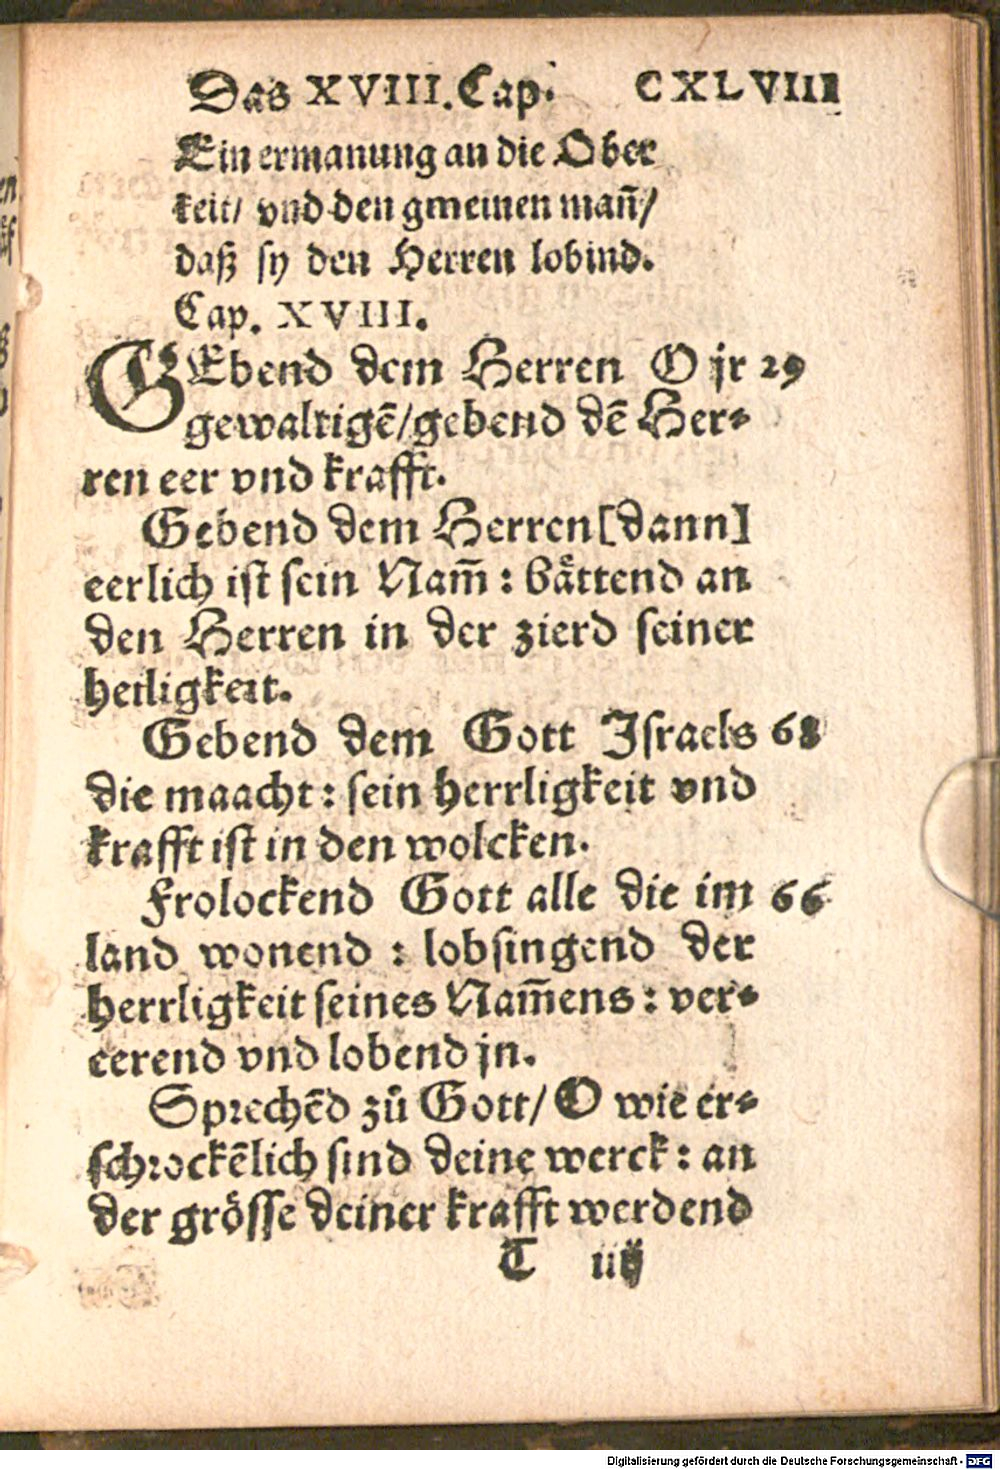 Das XVIII. Cap. CXLVIII
Ein ermanung an die Ober
keit/ vnd den gmeinen mañ/
daß sy den Herren lobind.
Cap. XVIII.
GEbend dem Herren O jr 29
gewaltigē/gebend dē Her⸗
ren eer vnd krafft.
Gebend dem Herren[dann]
eerlich ist sein Nam̃ : baͤttend an
den Herren in der zierd seiner
heiligkeit.
Gebend dem Gott Israels 68
die maacht : sein herrligkeit vnd
krafft ist in den wolcken.
Frolockend Gott alle die im 66
land wonend : lobsingend der
herrligkeit seines Nam̃ens : ver⸗
eerend vnd lobend jn.
Sprechēd zů Gott/ O wie er⸗
schrockēlich sind deine werck : an
der groͤsse deiner krafft werdend
T iiij
Digitalisierung gefördert durch die Deutsche Forschungsgemeinschaft - DFG